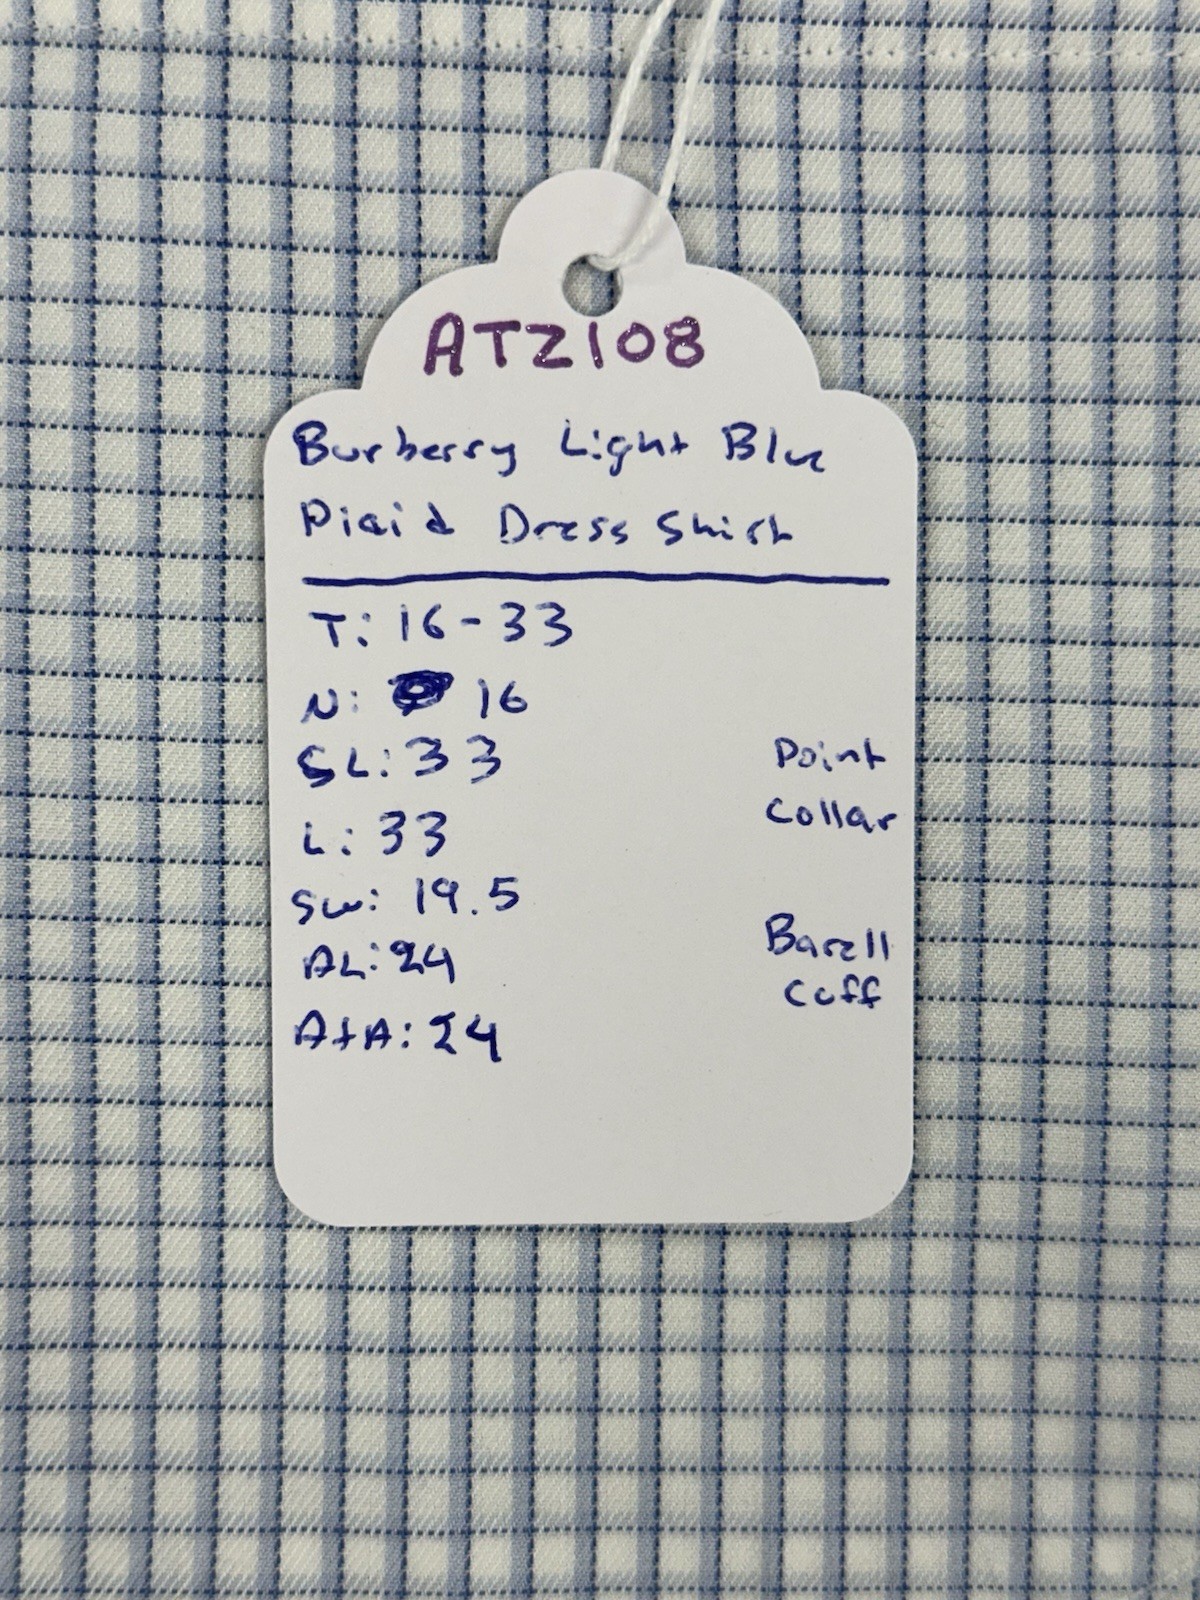 ATZ108
Burberry Light Blue
Plaid Dress Shirt
T: 16-33
N: 16
SL: 33
Point
L: 33
Collar
SW: 19.5
AL: 24
Barell
Cuff
AtA: 24